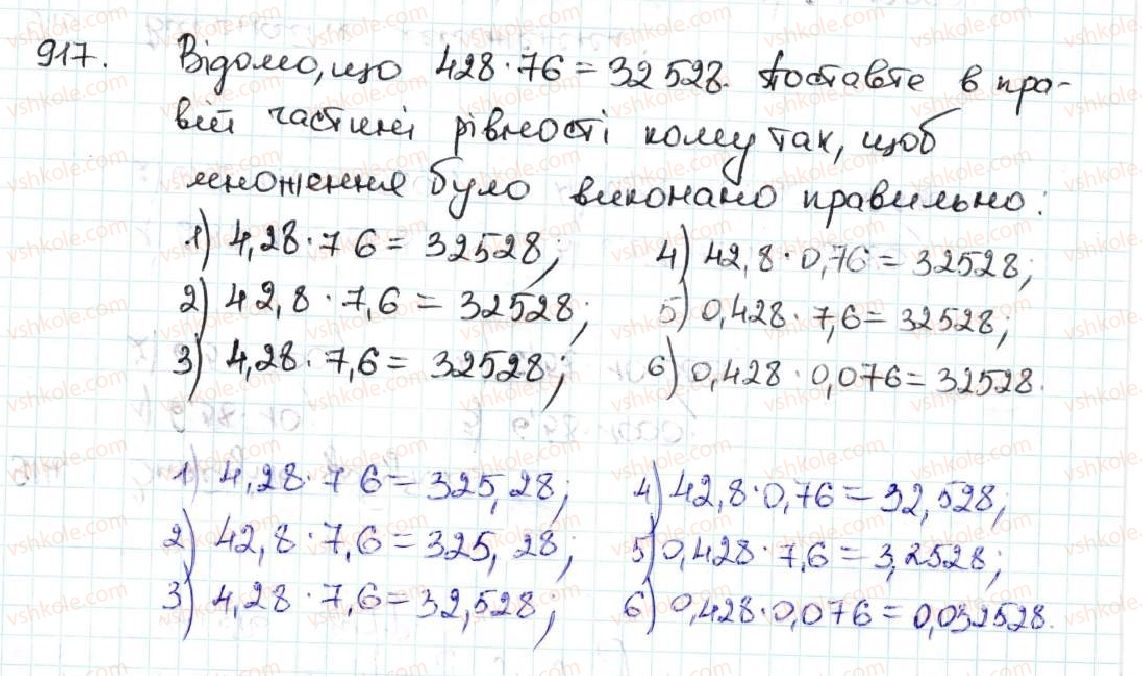 917. Відомо, що 428·76=32528. Поставте в пра-
вій частині рівності кому так, щоб
множення було виконано правильно:
1) 4,28·76=32528;
2) 42,8·7,6=32528;
3) 4,28·7,6=32528;
4) 42,8·0,76=32528;
5) 0,428·7,6=32528;
6) 0,428·0,076=32528.
1) 4,28·76=325,28;
2) 42,8·7,6=325,28;
3) 4,28·7,6=32,528;
4) 42,8·0,76=32,528;
5) 0,428·7,6=3,2528;
6) 0,428·0,076=0,032528.
vshkole.com